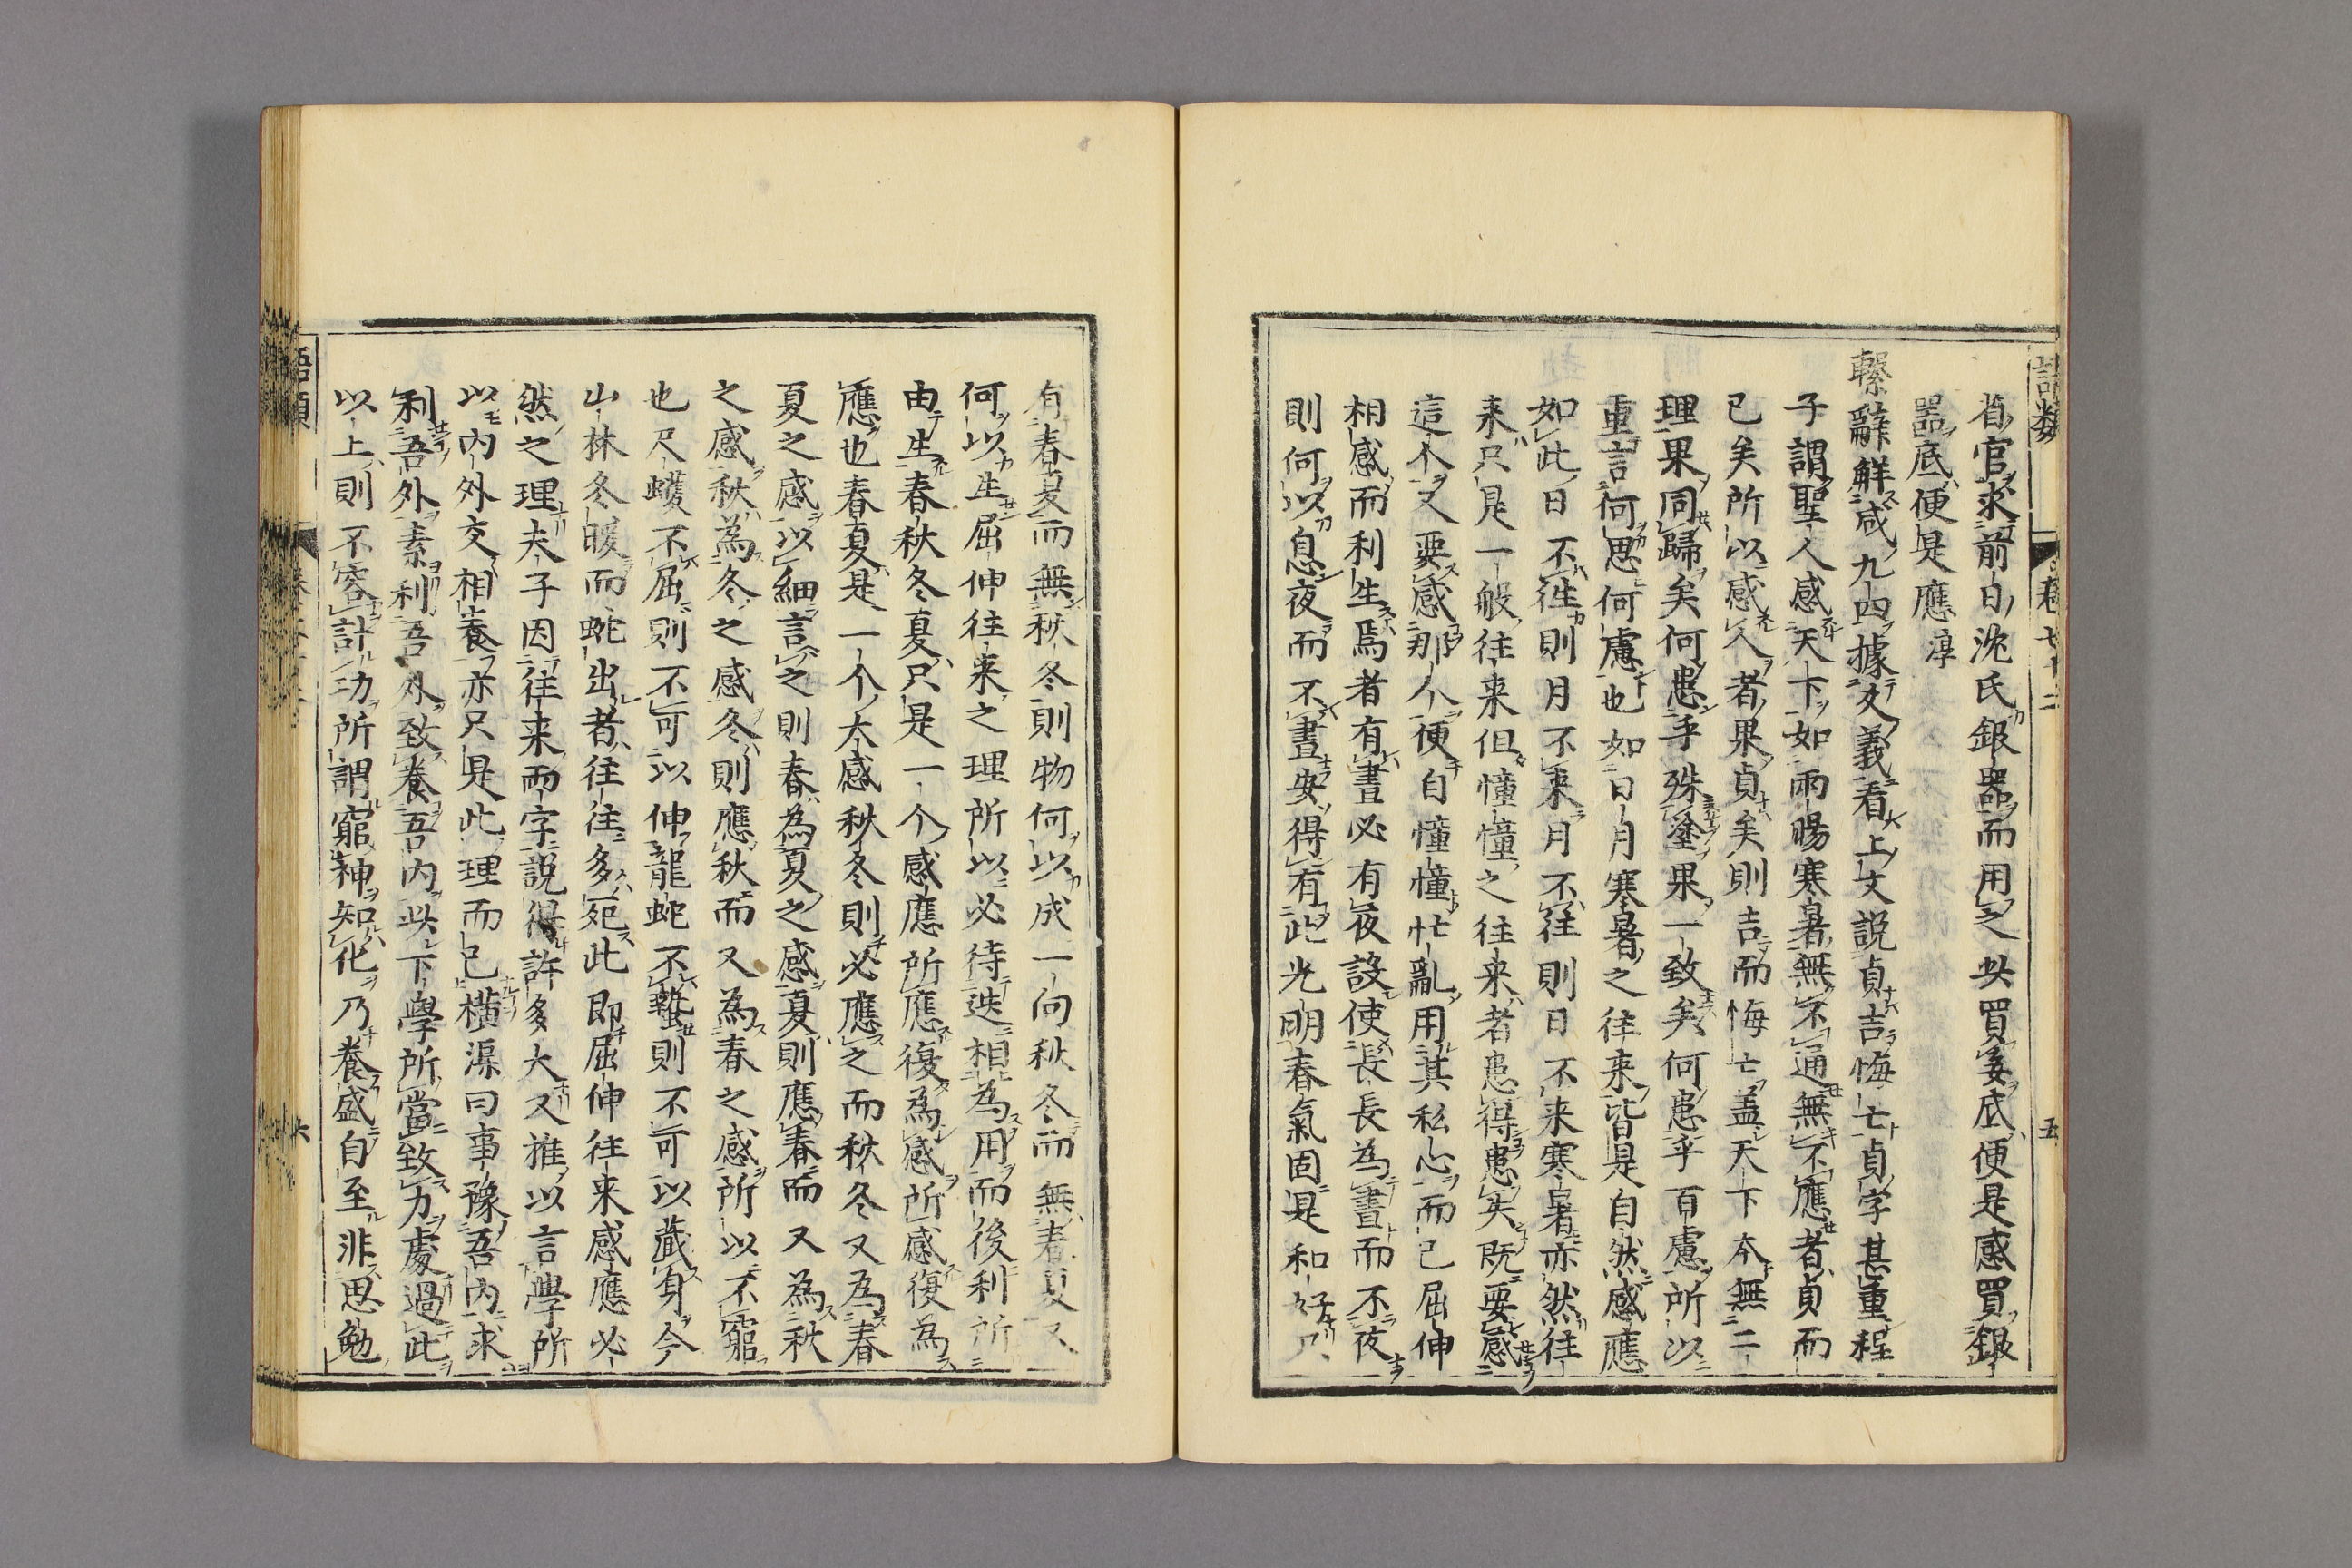 語類 卷七十二 五
省官求前日沈氏銀器而用之此買妾底便是感買銀
器底便是應淳
繫辭解咸九四據爻義看上文說貞吉悔亡貞字甚重程
子謂聖人感天下如雨暘寒暑無不通無不應者貞而
已矣所以感人者果貞矣則吉而悔亡蓋天下本無二
理果同歸矣何患乎殊塗果一致矣何患乎百慮所以
重言何思何慮也如日月寒暑之往来皆是自然感應
如此日不往則月不来月不往則日不来寒暑亦然往
来只是一般往来但憧憧之往来者患得患失既要感
這个又要感那个便自憧憧忙亂用其私心而已屈伸
相感而利生焉者有晝必有夜設使長長為晝而不夜
則何以息夜而不晝安得有此光明春氣固是和好只
有春夏而無秋冬則物何以成一向秋冬而無春夏又
何以生屈伸往来之理所以必待迭相為用而後利所
由生春秋冬夏只是一个感應所應復為感所感復為
應也春夏是一个大感秋冬則必應之而秋冬又為春
夏之感以細言之則春為夏之感夏則應春而又為秋
之感秋為冬之感冬則應秋而又為春之感所以不窮
也尺蠖不屈則不可以伸龍蛇不蟄則不可以藏身今
山林冬暖而蛇出者往往多死此即屈伸往来感應必
然之理夫子因往来兩字說得許多大又推以言學所
以内外交相養亦只是此理而已橫渠曰事豫吾内求
利吾外素利吾外致養吾内此下學所當致力處過此
以上則不容計功所謂窮神知化乃養盛自至非思勉
語類 六